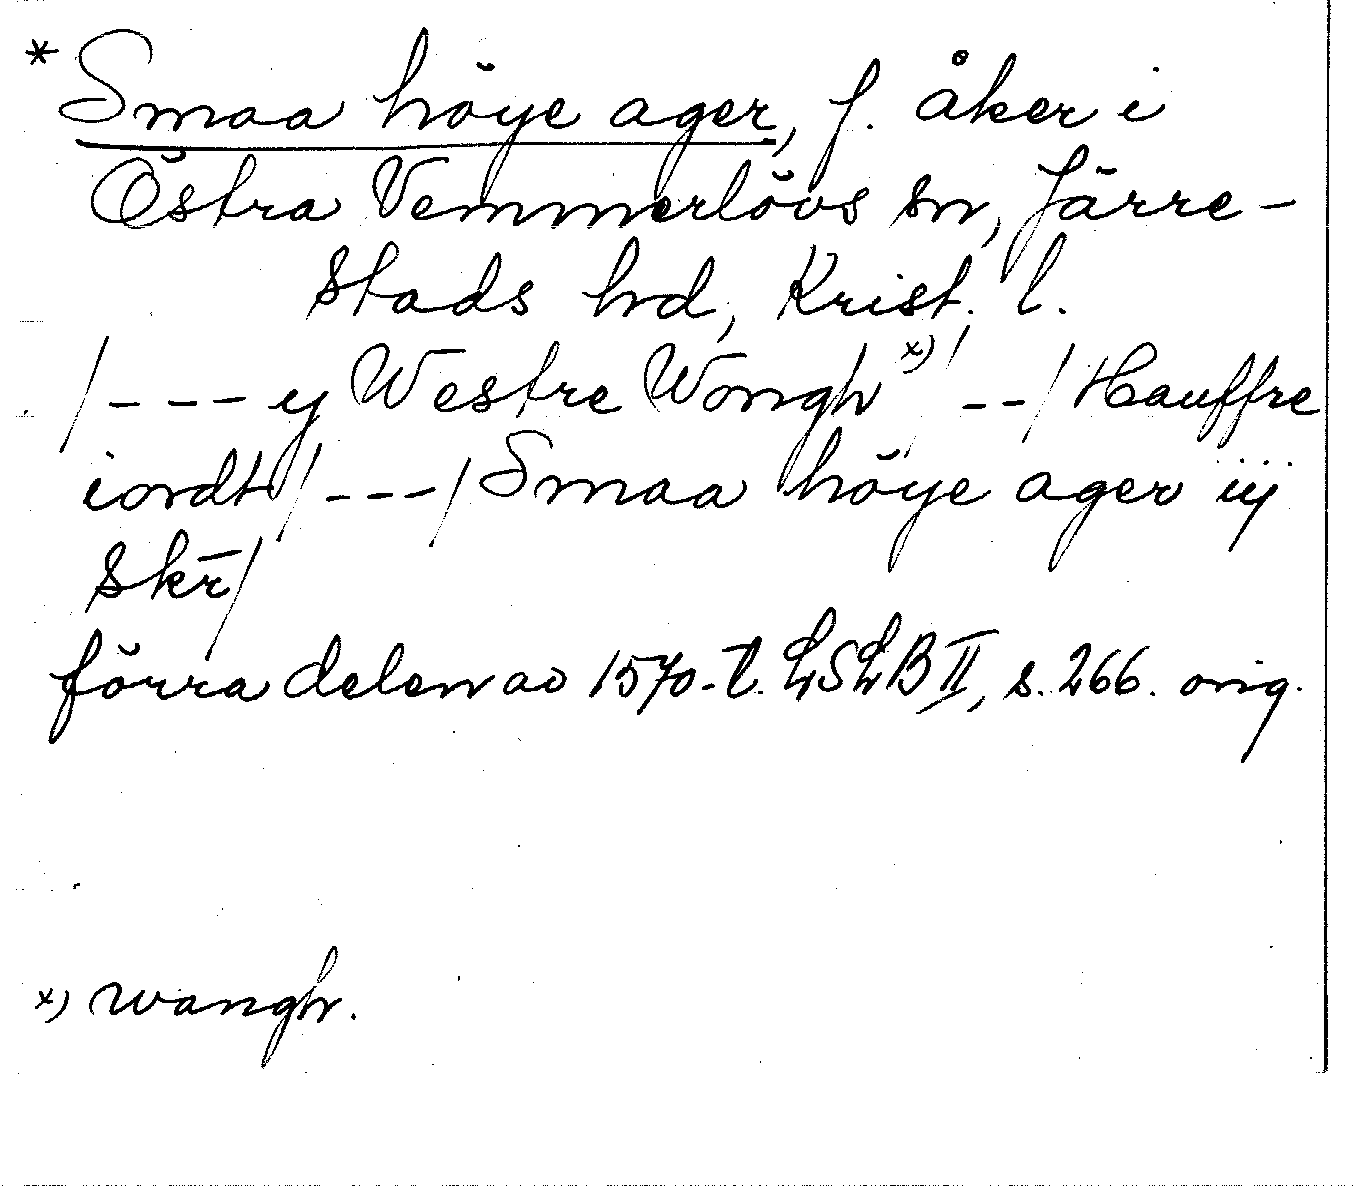 * Smaa höye ager, f. åker i
Östra Vemmerlövs sn, Järre-
stads hd, Krist. l.
/---y Westre Wongh x)/ --/ Hauffre
iordt/ ---/ Smaa höye ager iij
skr̄/
förra delen av 1570-t. LSLB II, s. 266. orig.
x) wangh.